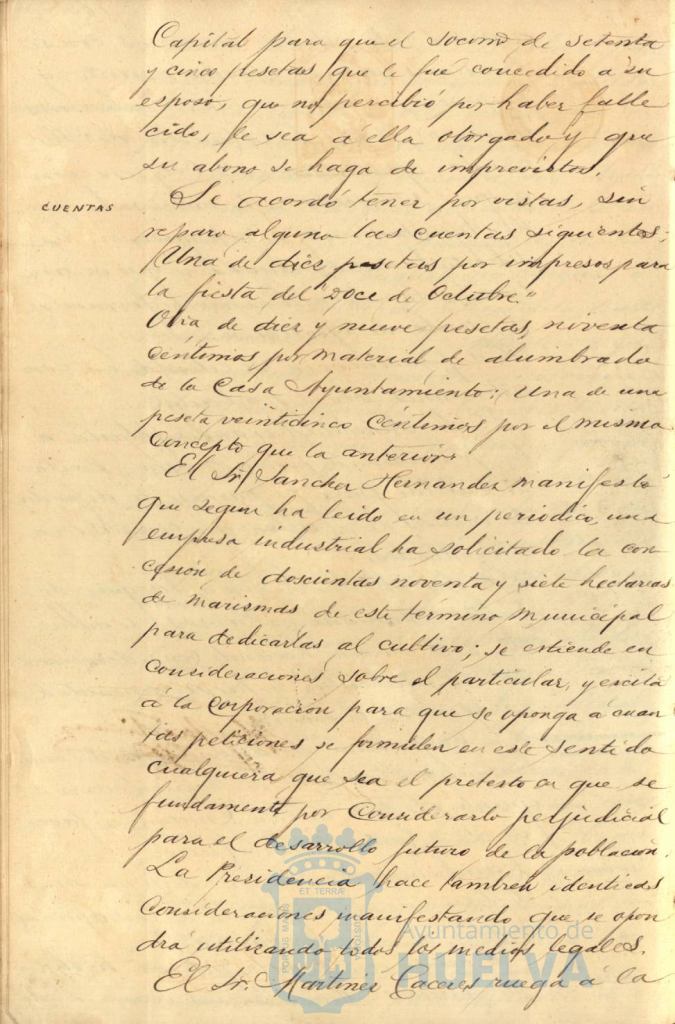 Capital para que el socorro de setenta
y cinco pesetas que le fué concedido a su
esposo, que no percibió por haber falle
cido, le sea á ella otorgado y que
su abono se haga de imprevistos.
CUENTAS
Se acordó tener por vistas, sin
reparo alguno las cuentas siguientes;
Una de diez pesetas por impresos para
la fiesta del "Doce de Octubre."
Otra de diez y nueve pesetas, noventa
céntimos por material de alumbrado
de la Casa Ayuntamiento; Una de una
peseta veinticinco céntimos por el mismo
Concepto que la anterior.
El Sr. Sanchez Hernandez manifestó
que segun ha leido en un periodico, una
empresa industrial ha solicitado la con
cesión de doscientas noventa y siete hectarias
de marismas de este termino municipal
para dedicarlas al cultivo; se estiende en
consideraciones sobre el particular, y escita
á la Corporación para que se oponga á cuan
tas peticiones se formulen en este sentido
cualquiera que sea el pretesto en que se
fundamente por considerarlo perjudicial
para el desarrollo futuro de la población.
La Presidencia hace tambien identicas
consideraciones manifestando que se opon
drá utilizando todos los medios legales.
El Sr. Martinez Caceres ruega á la
ET TERRÆ
Ayuntamiento de
HUELVA